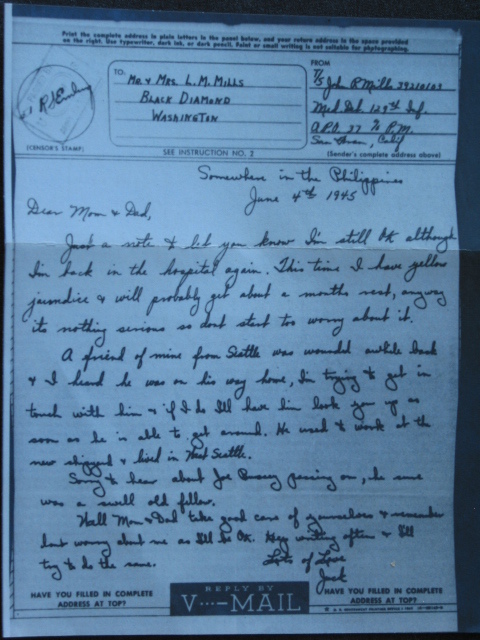 Print the complete address in plain letters in the panel below, and your return address in the space provided
on the right. Use typewriter, dark ink, or dark pencil. Faint or small writing is not suitable for photographing.
TO:
Mr & Mrs L. M. Mills
Black Diamond
Washington
FROM
T/5 John R Mills 39210109
Med. Det 129th Inf.
A.P.O. 37 % P.M.
San Fran, Calif
(CENSOR'S STAMP)
SEE INSTRUCTION NO. 2
(Sender's complete address above)
Somewhere in the Philippines
June 4th 1945
Dear Mom & Dad,
Just a note to let you know I'm still OK although
I'm back in the hospital again. This time I have yellow
jaundice & will probably get about a months rest, anyway
its nothing serious so dont start too worry about it.
A friend of mine from Seattle was wounded awhile back
& I heard he was on his way home, I'm trying to get in
touch with him & if I do I'll have him look you up as
soon as he is able to get around. He used to work at the
new shipyard & lived in West Seattle.
Sorry to hear about Joe passing on, he sure
was a swell old fellow.
Well Mom & Dad take good care of yourselves & remember
dont worry about me as I'll be OK. Keep writing often & I'll
try to do the same.
Lots of Love
Jack
HAVE YOU FILLED IN COMPLETE
ADDRESS AT TOP?
REPLY BY
V···-MAIL
HAVE YOU FILLED IN COMPLETE
ADDRESS AT TOP?